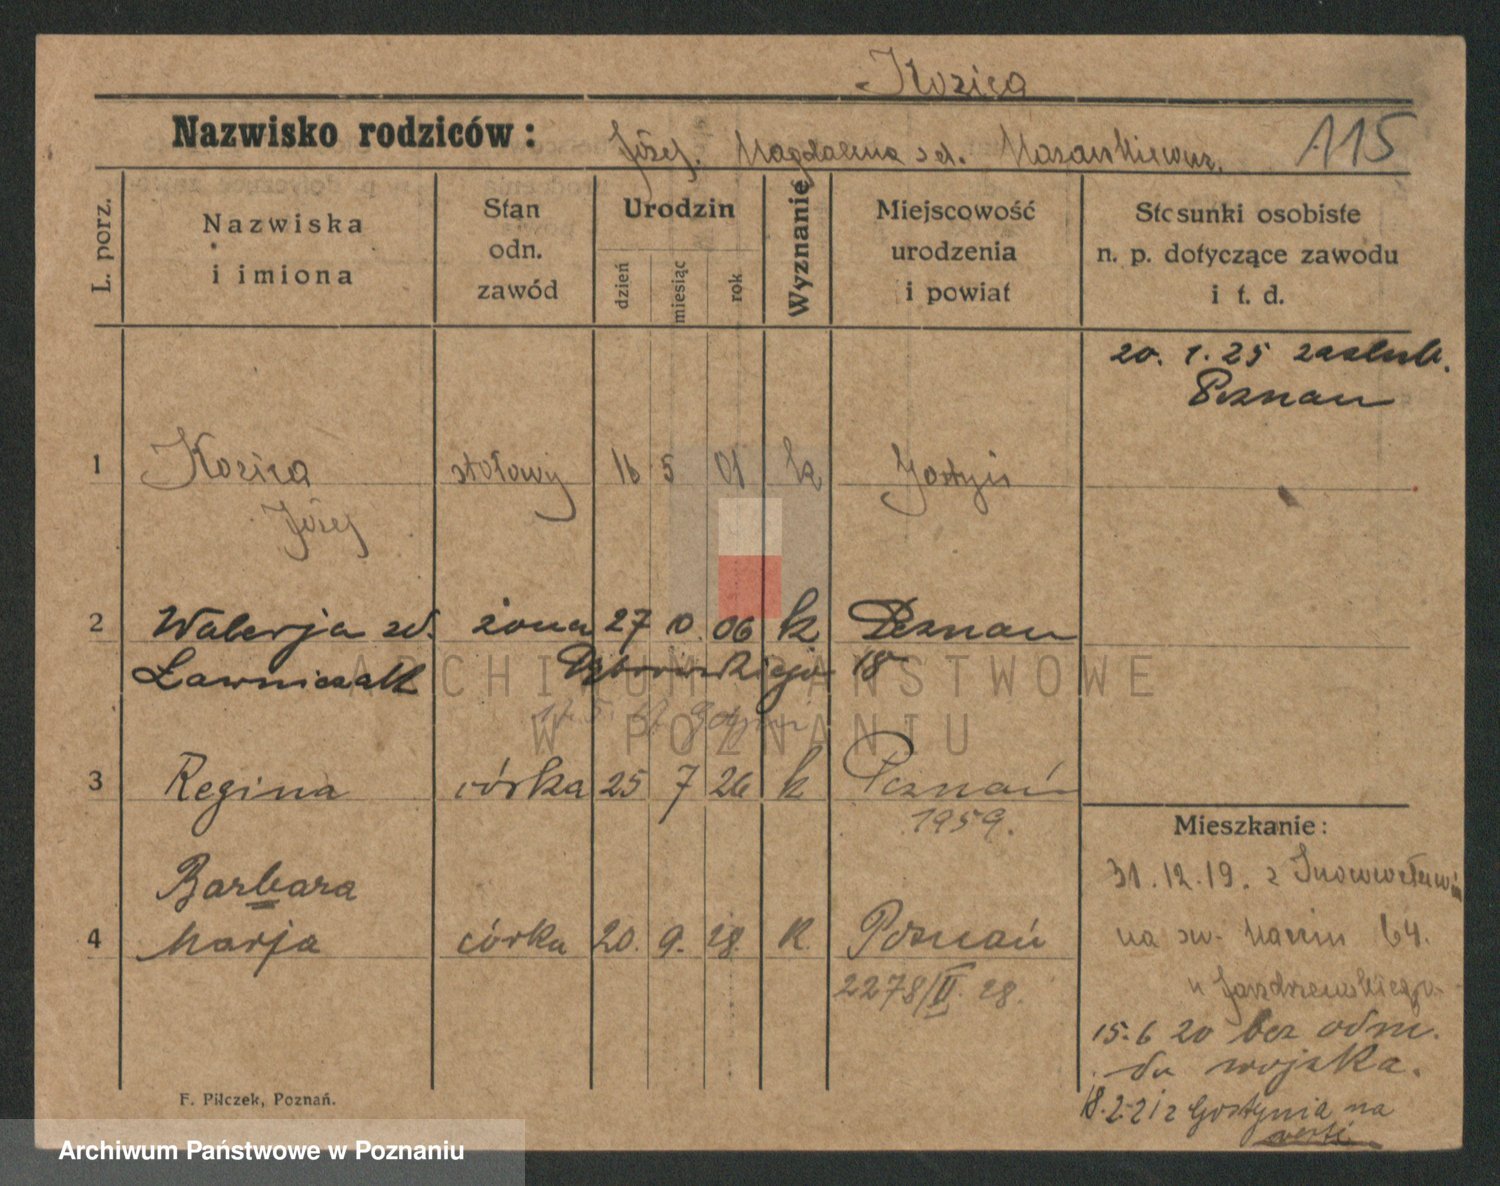 Kozica
Nazwisko rodziców: Józef. Magdalena zd. 115
L. porz.
Nazwiska
i imiona
Stan
odn.
zawód
Urodzin
dzień
miesiąc
rok
Wyznanie
Miejscowość
urodzenia
i powiat
Stosunki osobiste
n. p. dotyczące zawodu
i t. d.
20. 1. 25 zaślub.
Poznań
1 Kozica stołowy 16 5 01 k Gostyń
Józef
2 Walerja zd. żona 27 10. 06 k Poznań
Ławniczak Dąbrowskiego 18
3 Regina córka 25 7 26 k Poznań
1959.
Mieszkanie:
Barbara
4 Marja córka 20. 9. 28. k. Poznań
2278/II. 28.
31.12.19. z Inowrocławia
na św. Marcin 64.
u
15.6 20 bez odm.
do wojska.
18.2.21 z Gostynia na
F. Pilczek, Poznań.
ARCHIWUM PAŃSTWOWE
W POZNANIU
Archiwum Państwowe w Poznaniu